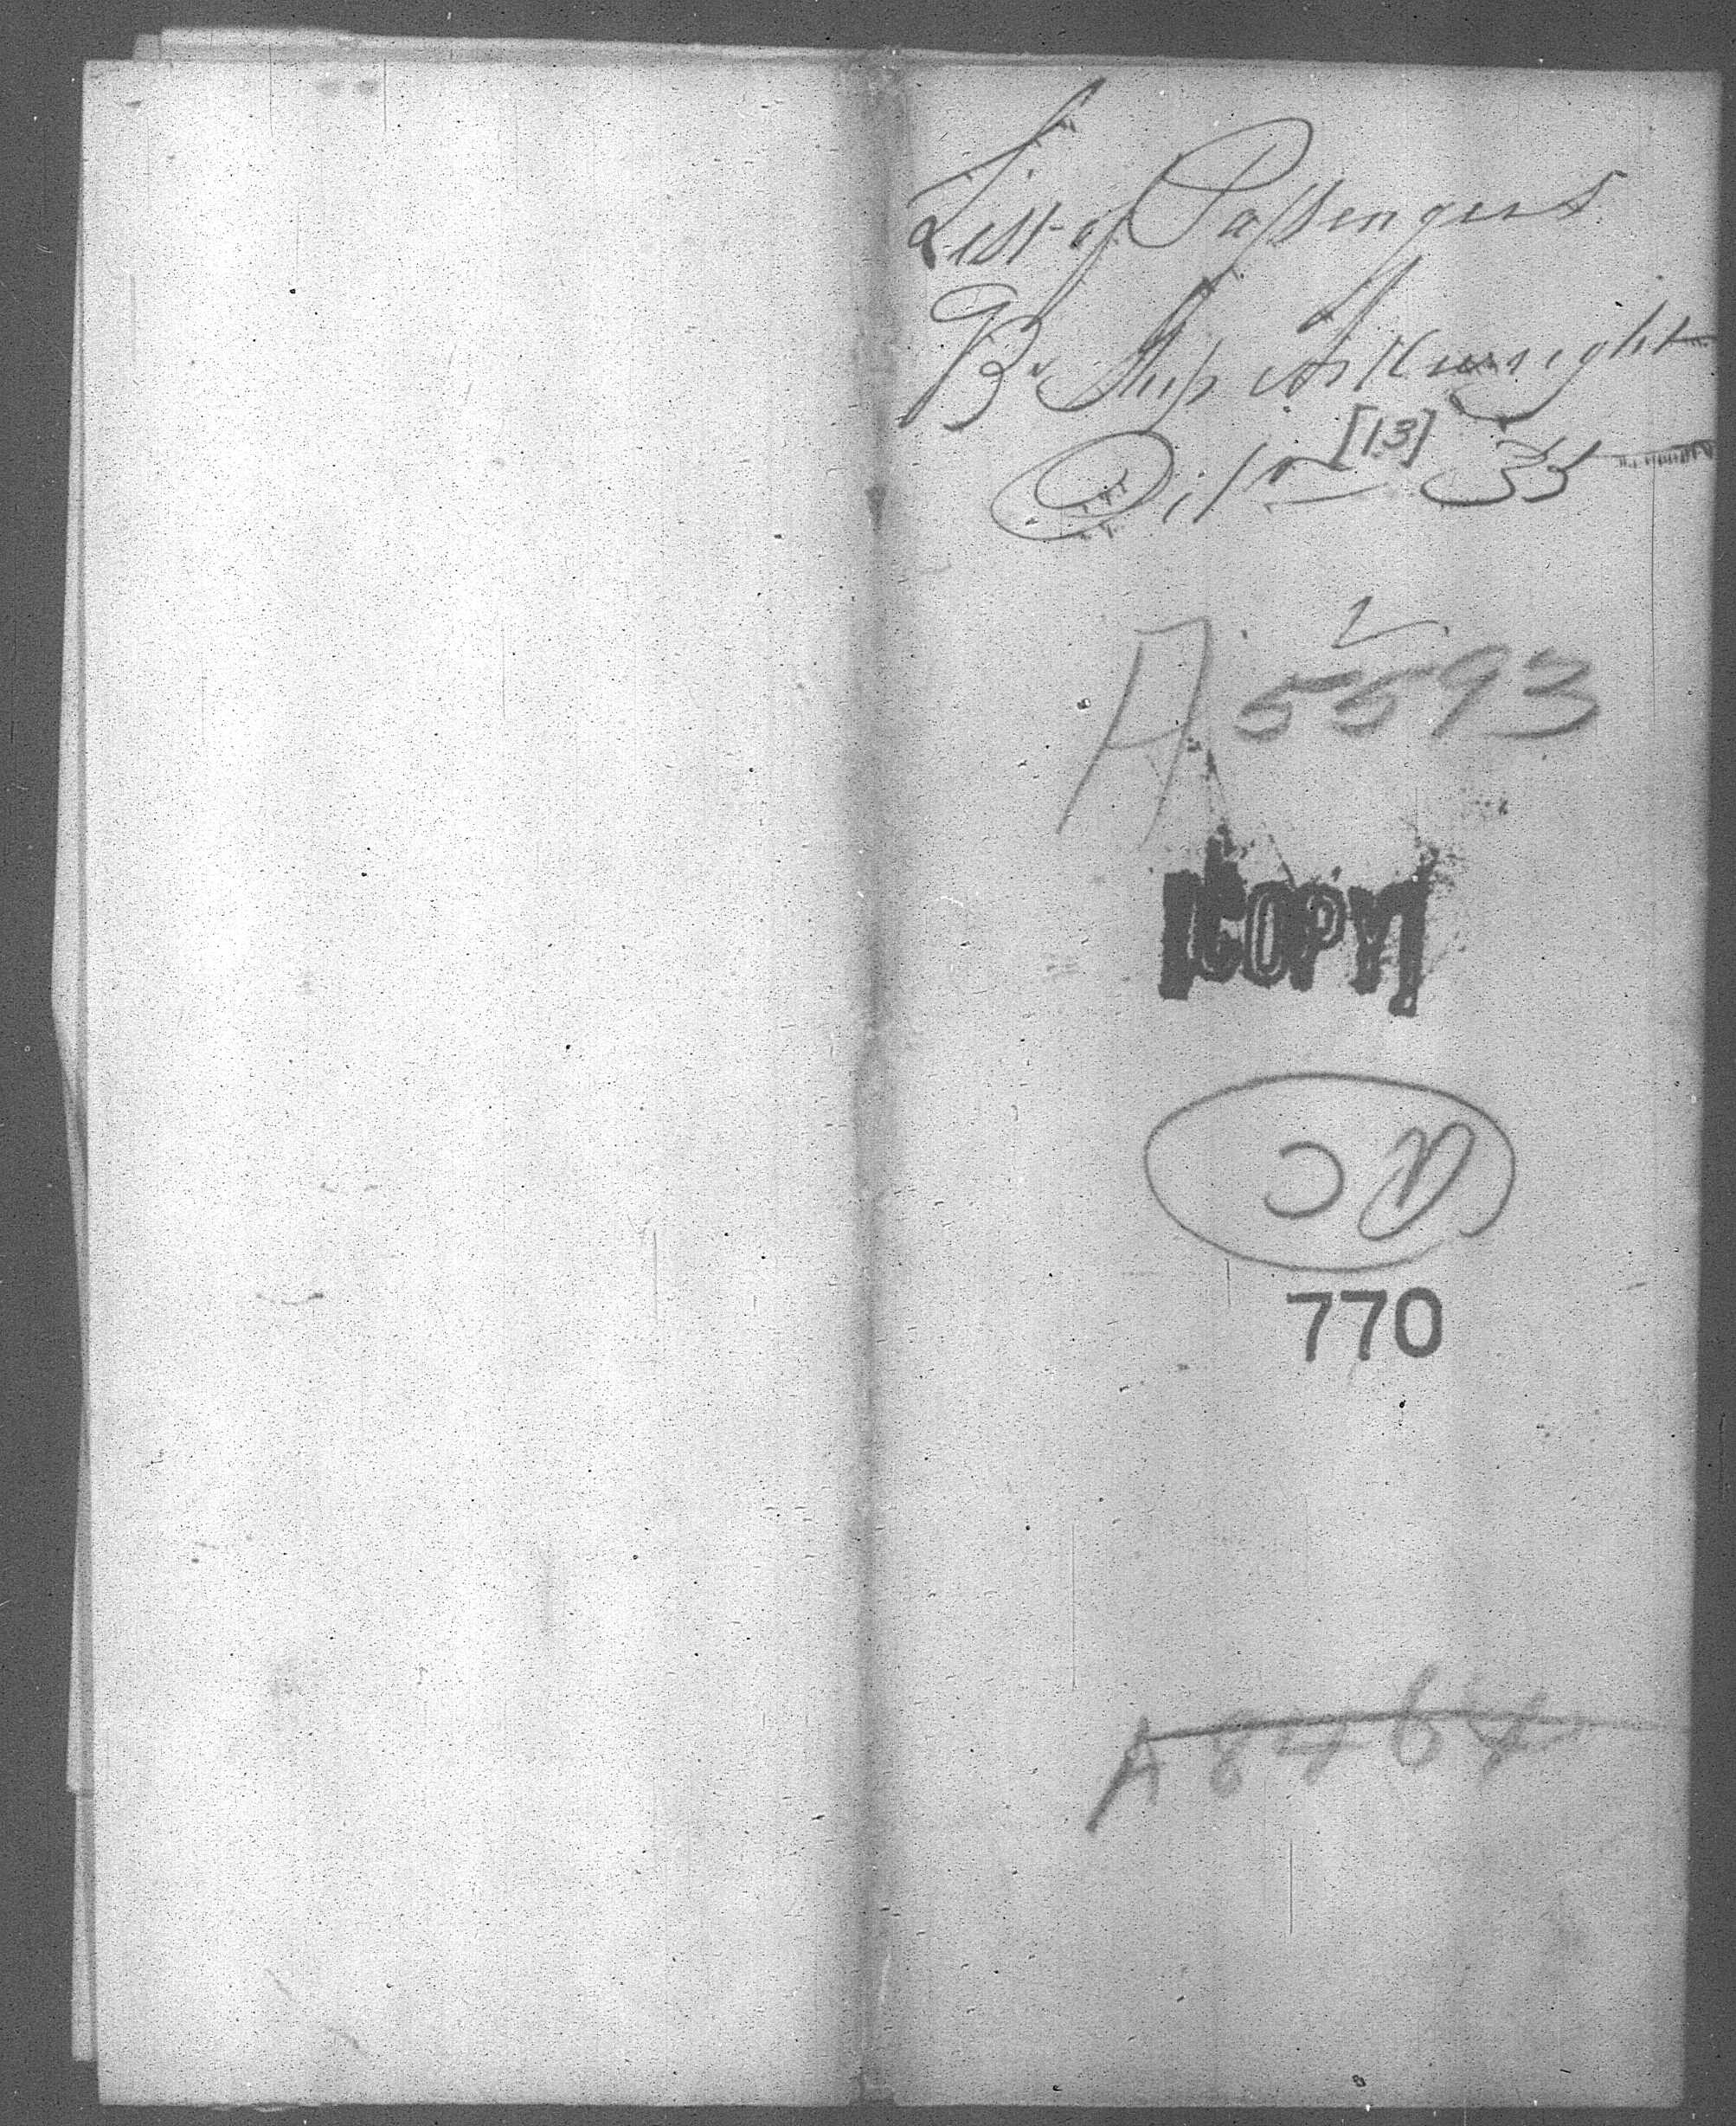 List of Passengers
Br Ship Arkwright
[13] 35
A 5593
[COPY]
770
A 8464